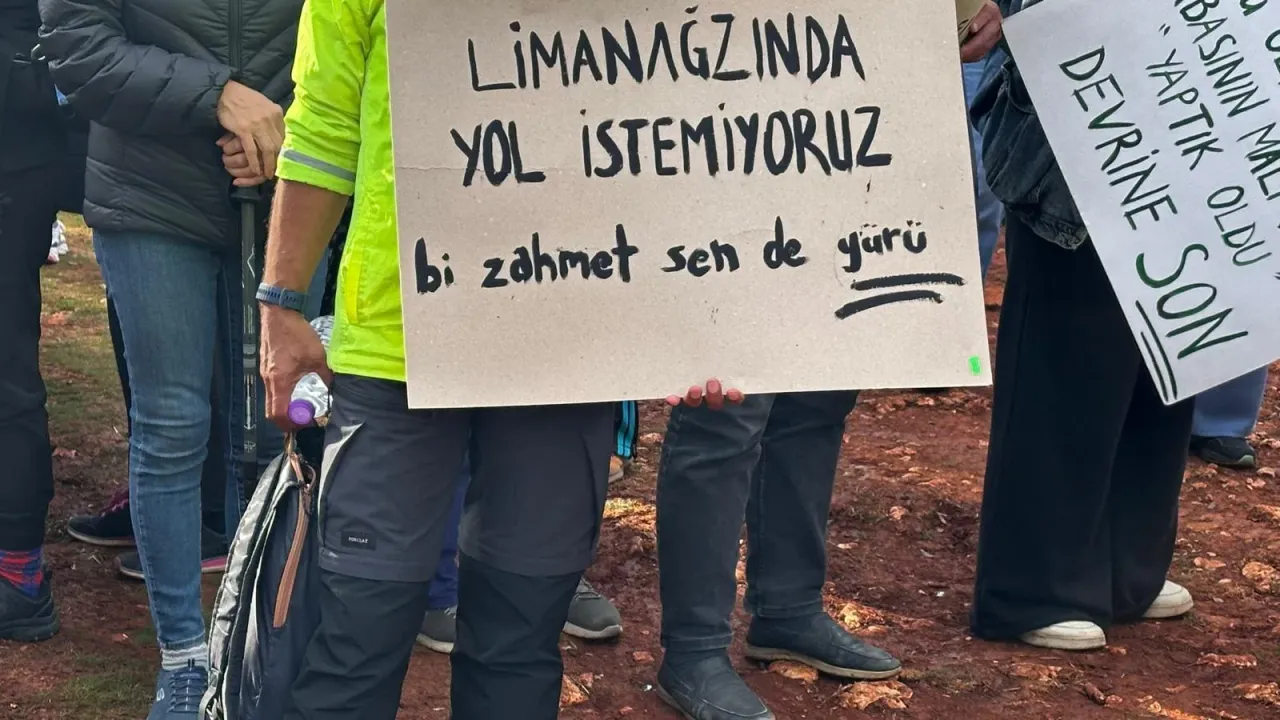 LİMANAĞZINDA
YOL İSTEMİYORUZ
bi zahmet sen de yürü
BASININ MALI
"YAPTIK OLDU"
DEVRİNE
SON